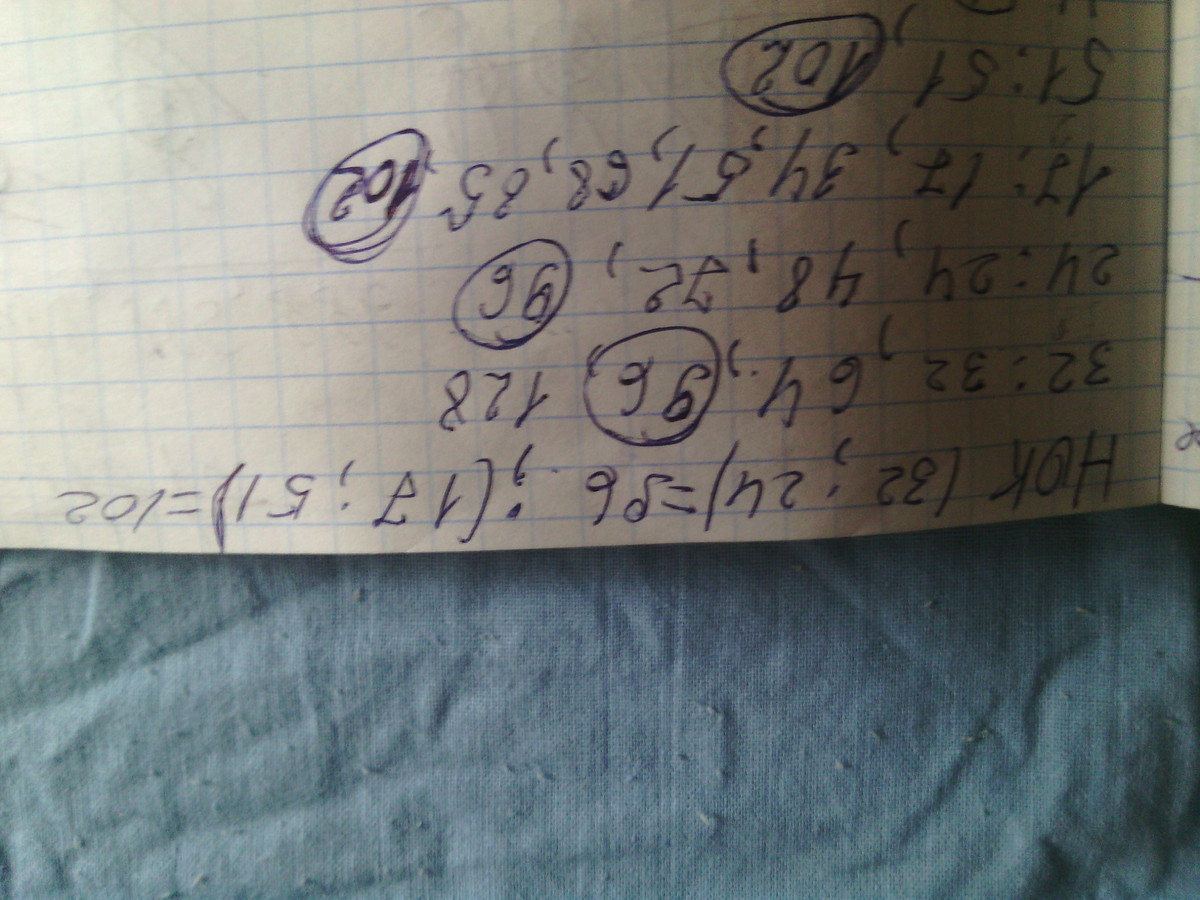 НОК (32; 24)=96 ; (17; 51)=102
32: 32, 64, 96, 128
24: 24, 48, 72, 96
17: 17, 34, 51, 68, 85, 102
51: 51, 102